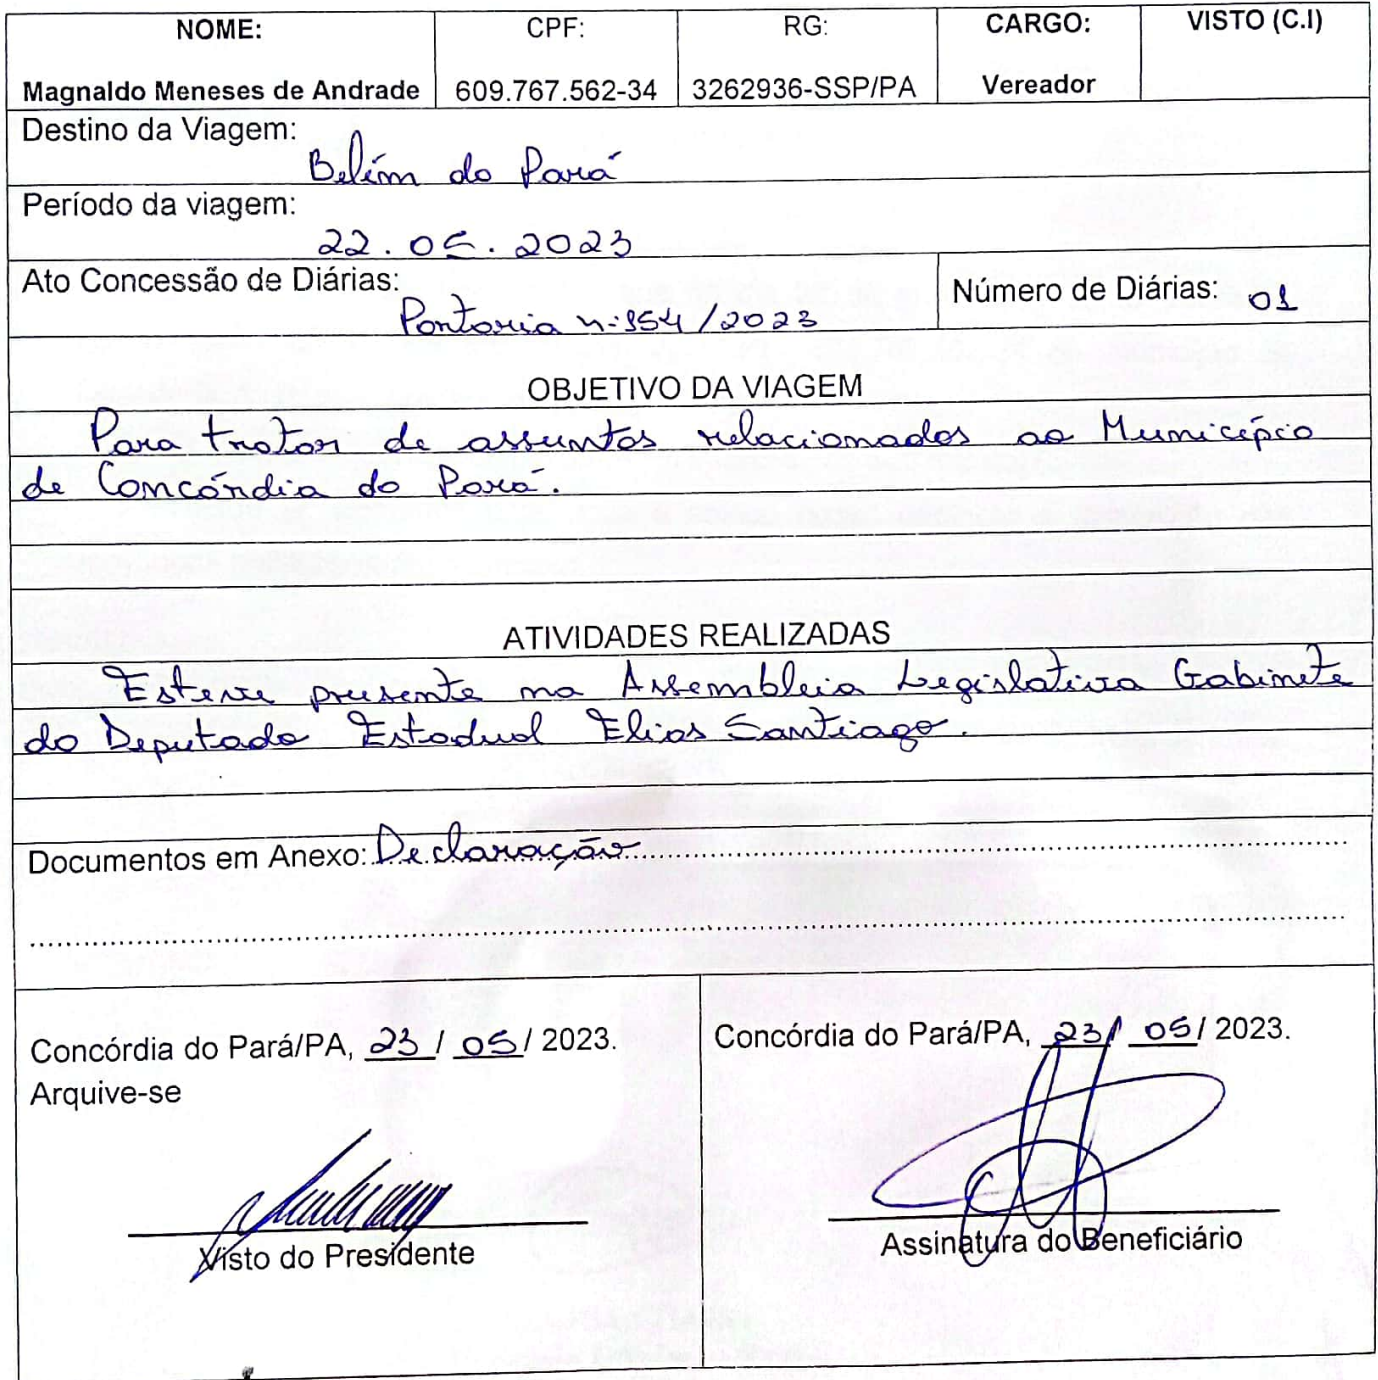 NOME: CPF: RG: CARGO: VISTO (C.I)
Magnaldo Meneses de Andrade 609.767.562-34 3262936-SSP/PA Vereador
Destino da Viagem:
Belém do Pará
Período da viagem:
22.05.2023
Ato Concessão de Diárias:
Portaria nº 154/2023
Número de Diárias: 01
OBJETIVO DA VIAGEM
Para tratar de assuntos relacionados ao Município
de Concórdia do Pará.
ATIVIDADES REALIZADAS
Esteve presente na Assembleia Legislativa Gabinete
do Deputado Estadual Elias Santiago.
Documentos em Anexo: Declaração
Concórdia do Pará/PA, 23/05/2023.
Arquive-se
Visto do Presidente
Concórdia do Pará/PA, 23/05/2023.
Assinatura do Beneficiário